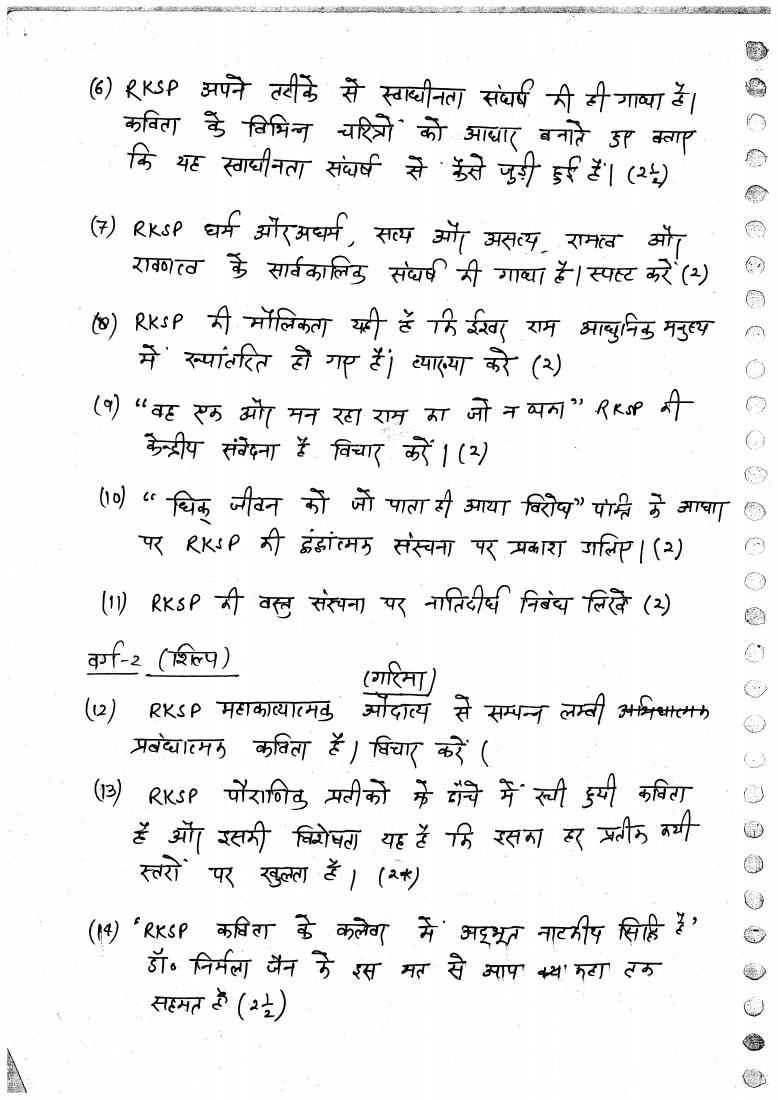 (6) RKSP अपने तरीके से स्वाधीनता संघर्ष की ही गाथा है।
कविता के विभिन्न चरित्रों को आधार बनाते हुए बताए
कि यह स्वाधीनता संघर्ष से कैसे जुड़ी हुई है। (2½)
(7) RKSP धर्म और अधर्म, सत्य और असत्य, रामत्व और
रावणत्व के सार्वकालिक संघर्ष की गाथा है। स्पष्ट करें (2)
(8) RKSP की मौलिकता यही है कि ईश्वर राम आधुनिक मनुष्य
में रूपांतरित हो गए हैं। व्याख्या करे (2)
(9) “वह एक और मन रहा राम का जो न थका” RKSP की
केन्द्रीय संवेदना है विचार करें। (2)
(10) “धिक् जीवन को जो पाता ही आया विरोध” पंक्ति के आधार
पर RKSP की द्वंद्वात्मक संरचना पर प्रकाश डालिए। (2)
(11) RKSP की वस्तु संरचना पर नातिदीर्घ निबंध लिखें (2)
वर्ग-2 (शिल्प)
(गरिमा)
(12) RKSP महाकाव्यात्मक औदात्य से सम्पन्न लम्बी
प्रबंधात्मक कविता है। विचार करें (
(13) RKSP पौराणिक प्रतीकों के ढाँचे में रची हुयी कविता
है और इसकी विशेषता यह है कि इसका हर प्रतीक कयी
स्तरों पर खुलता है। (2*)
(14) ‘RKSP कविता के कलेवर में अद्भूत नाटकीय सिद्धि है’
डॉ० निर्मला जैन के इस मत से आप कहा तक
सहमत है (2½)